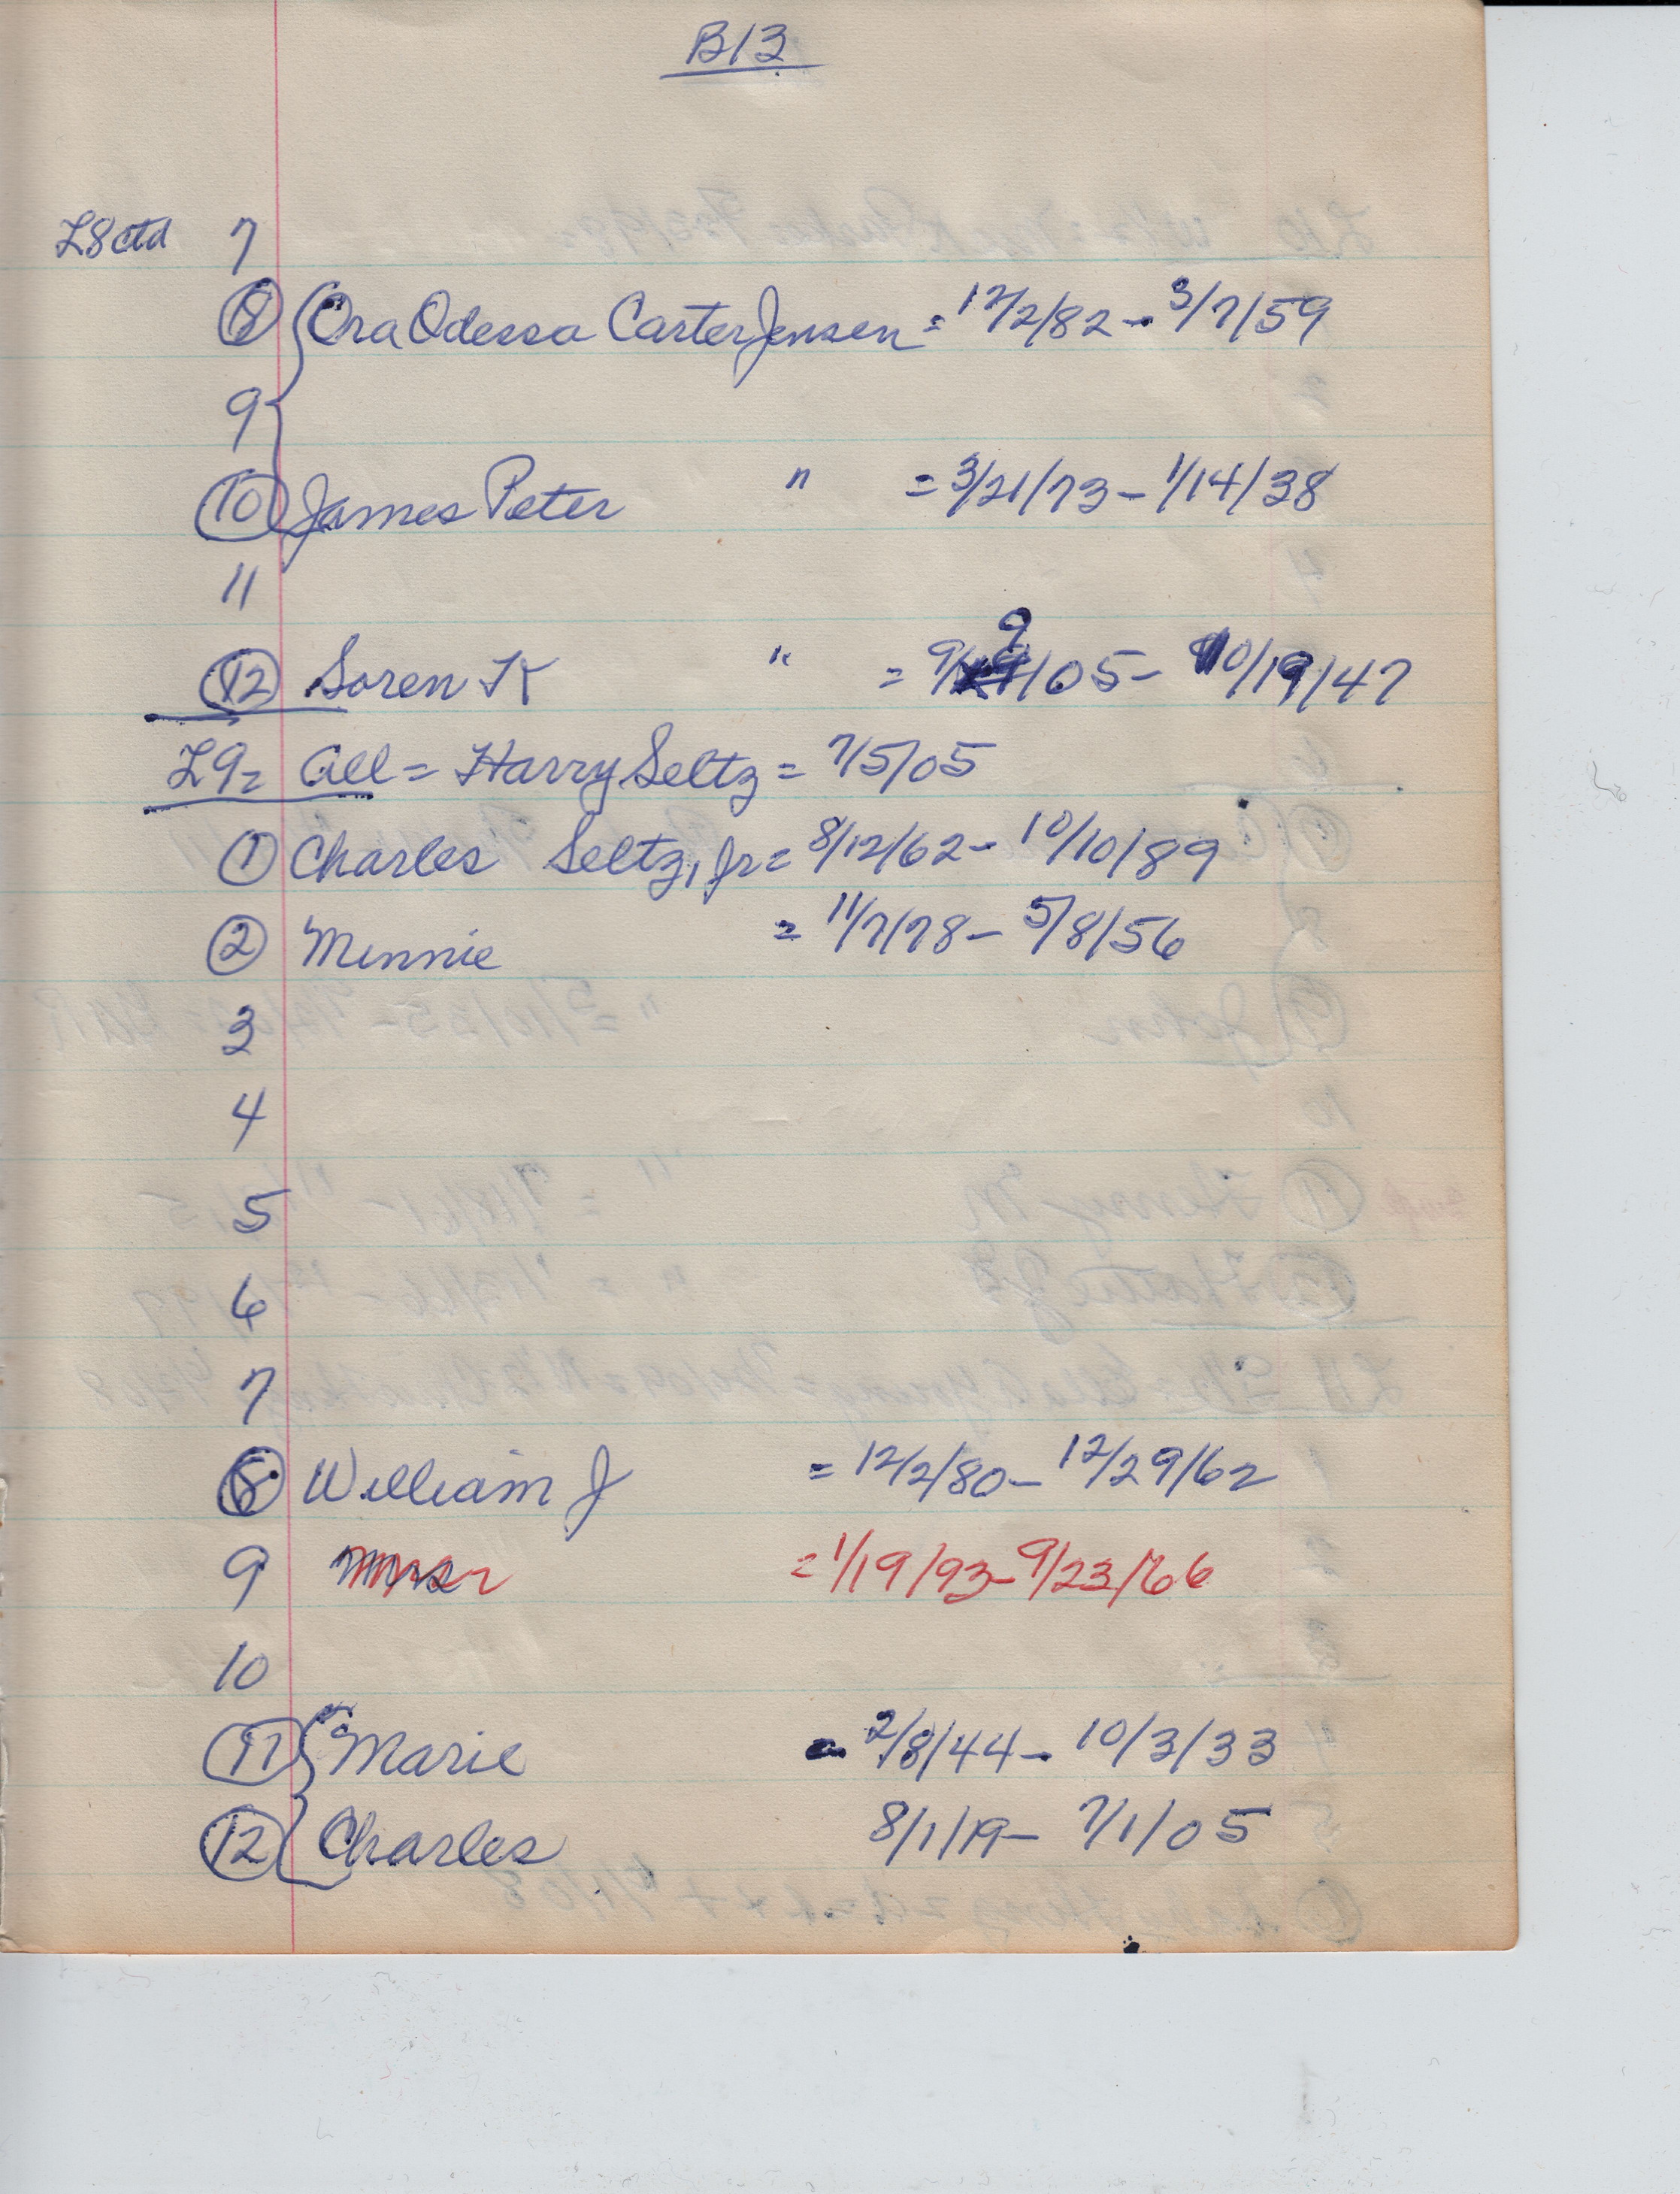 B13
L8 ctd 7
8 Ora Odessa Carter Jensen = 12/2/82 - 3/7/59
9
10 James Peter " = 3/21/73 - 1/14/38
11
12 Soren K " = 9/9/05 - 10/19/47
L9 = All = Harry Seltz = 7/5/05
1 Charles Seltz, Jr = 8/12/62 - 10/10/89
2 Minnie = 11/7/78 - 5/8/56
3
4
5
6
7
8 William J = 12/2/80 - 12/29/62
9 = 1/19/93 - 9/23/66
10
11 Marie = 2/8/44 - 10/3/33
12 Charles 8/1/19 - 7/1/05